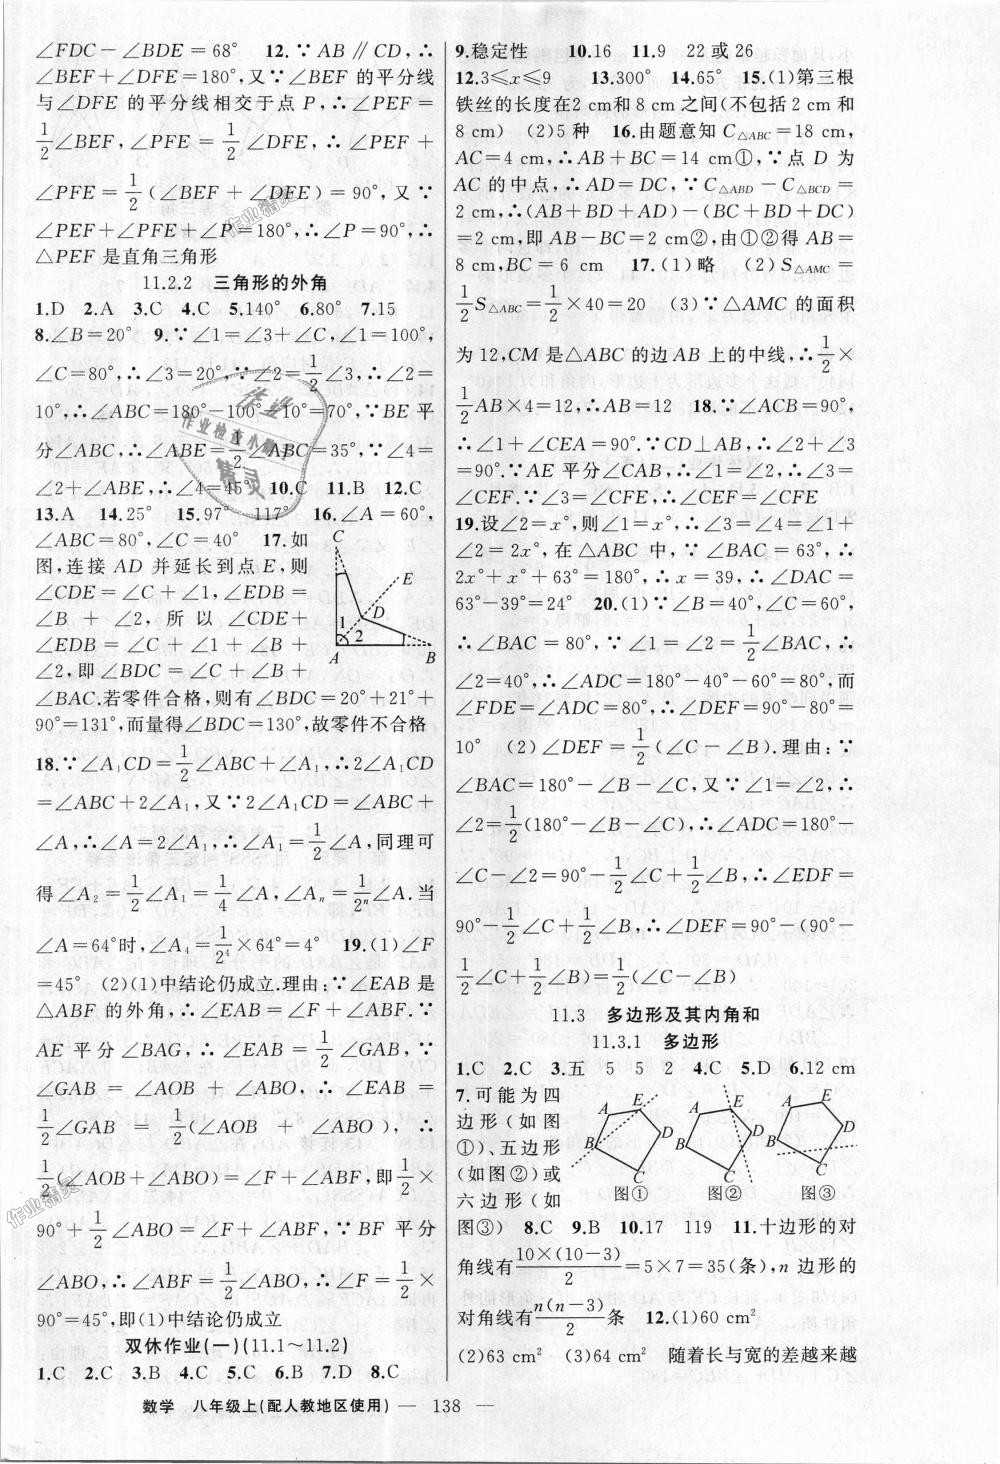 ∠FDC－∠BDE＝68° 12.∵AB∥CD,∴
∠BEF＋∠DFE＝180°,又∵∠BEF 的平分线
与∠DFE 的平分线相交于点 P,∴∠PEF＝
1/2∠BEF,∠PFE＝1/2∠DFE,∴∠PEF＋
∠PFE＝1/2(∠BEF＋∠DFE)＝90°,又∵
∠PEF＋∠PFE＋∠P＝180°,∴∠P＝90°,∴
△PEF 是直角三角形
11.2.2 三角形的外角
1.D 2.A 3.C 4.C 5.140° 6.80° 7.15
8.∠B＝20° 9.∵∠1＝∠3＋∠C,∠1＝100°,
∠C＝80°,∴∠3＝20°,∵∠2＝1/2∠3,∴∠2＝
10°,∴∠ABC＝180°－100°－10°＝70°,∵BE 平
分∠ABC,∴∠ABE＝1/2∠ABC＝35°,∵∠4＝
∠2＋∠ABE,∴∠4＝45° 10.C 11.B 12.C
13.A 14.25° 15.97° 117° 16.∠A＝60°,
∠ABC＝80°,∠C＝40° 17.如
图,连接 AD 并延长到点 E,则
∠CDE＝∠C＋∠1,∠EDB＝
∠B＋∠2,所以∠CDE＋
∠EDB＝∠C＋∠1＋∠B＋
∠2,即∠BDC＝∠C＋∠B＋
∠BAC.若零件合格,则有∠BDC＝20°＋21°＋
90°＝131°,而量得∠BDC＝130°,故零件不合格
C
E
D
1
2
A
B
18.∵∠A₁CD＝1/2∠ABC＋∠A₁,∴2∠A₁CD
＝∠ABC＋2∠A₁,又∵2∠A₁CD＝∠ABC＋
∠A,∴∠A＝2∠A₁,∴∠A₁＝1/2∠A,同理可
得∠A₂＝1/2∠A₁＝1/4∠A,∠Aₙ＝1/2ⁿ∠A.当
∠A＝64°时,∠A₄＝1/2⁴×64°＝4° 19.(1)∠F
＝45° (2)(1)中结论仍成立.理由:∵∠EAB 是
△ABF 的外角,∴∠EAB＝∠F＋∠ABF.∵
AE 平分∠BAG,∴∠EAB＝1/2∠GAB,∵
∠GAB＝∠AOB＋∠ABO,∴∠EAB＝
1/2∠GAB＝1/2(∠AOB＋∠ABO),∴
1/2∠AOB＋1/2∠ABO＝∠F＋∠ABF,即1/2×
90°＋1/2∠ABO＝∠F＋∠ABF,∵BF 平分
∠ABO,∴∠ABF＝1/2∠ABO,∴∠F＝1/2×
90°＝45°,即(1)中结论仍成立
双休作业(一)(11.1～11.2)
1.C 2.C 3.B 4.C 5.C 6.B 7.D 8.C
9.稳定性 10.16 11.9 22 或 26
12.3≤x≤9 13.300° 14.65° 15.(1)第三根
铁丝的长度在2 cm和 8 cm 之间(不包括 2 cm 和
8 cm) (2)5 种 16.由题意知 C△ABC＝18 cm,
AC＝4 cm,∴AB＋BC＝14 cm①,∵点 D 为
AC 的中点,∴AD＝DC,∵C△ABD－C△BCD＝
2 cm,∴(AB＋BD＋AD)－(BC＋BD＋DC)
＝2 cm,即 AB－BC＝2 cm②,由①②得 AB＝
8 cm,BC＝6 cm 17.(1)略 (2)S△AMC＝
1/2S△ABC＝1/2×40＝20 (3)∵△AMC 的面积
为 12,CM 是△ABC 的边 AB 上的中线,∴1/2×
1/2AB×4＝12,∴AB＝12 18.∵∠ACB＝90°,
∴∠1＋∠CEA＝90°.∵CD⊥AB,∴∠2＋∠3
＝90°.∵AE 平分∠CAB,∴∠1＝∠2,∴∠3＝
∠CEF.∵∠3＝∠CFE,∴∠CEF＝∠CFE
19.设∠2＝x°,则∠1＝x°,∴∠3＝∠4＝∠1＋
∠2＝2x°,在△ABC 中,∵∠BAC＝63°,∴
2x°＋x°＋63°＝180°,∴x＝39,∴∠DAC＝
63°－39°＝24° 20.(1)∵∠B＝40°,∠C＝60°,
∴∠BAC＝80°,∵∠1＝∠2＝1/2∠BAC,∴
∠2＝40°,∴∠ADC＝180°－40°－60°＝80°,而
∠FDE＝∠ADC＝80°,∴∠DEF＝90°－80°＝
10° (2)∠DEF＝1/2(∠C－∠B).理由:∵
∠BAC＝180°－∠B－∠C,又∵∠1＝∠2,∴
∠2＝1/2(180°－∠B－∠C),∴∠ADC＝180°－
∠C－∠2＝90°－1/2∠C＋1/2∠B,∴∠EDF＝
90°－1/2∠C＋1/2∠B,∴∠DEF＝90°－(90°－
1/2∠C＋1/2∠B)＝1/2(∠C－∠B)
11.3 多边形及其内角和
11.3.1 多边形
1.C 2.C 3.五 5 5 2 4.C 5.D 6.12 cm
7.可能为四
边形(如图
①)、五边形
(如图②)或
六边形(如
图③) 8.C 9.B 10.17 119 11.十边形的对
A E D B C
图①
A E D B C
图②
A E D B C
图③
角线有10×(10－3)/2＝5×7＝35(条),n 边形的
对角线有n(n－3)/2条 12.(1)60 cm²
(2)63 cm² (3)64 cm² 随着长与宽的差越来越
数学 八年级上(配人教地区使用) — 138 —
作业
作业检查小助手
精灵
作业精灵
作业精灵